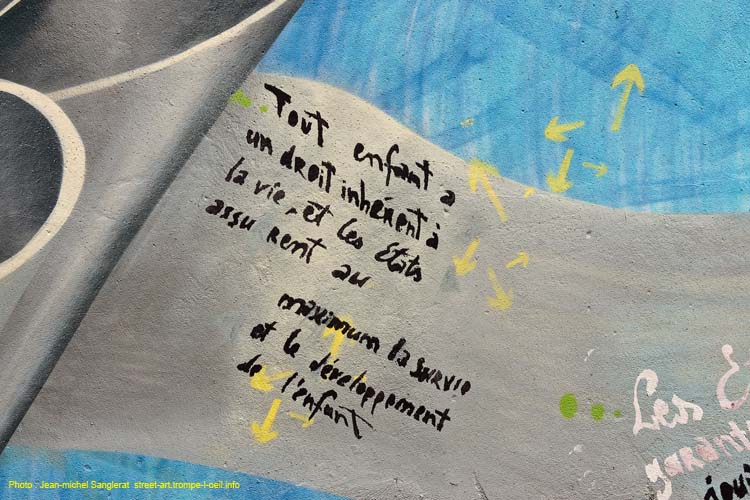 Tout enfant a
un droit inhérent à
la vie, et les Etats
assurent au
maximum la survie
et le développement
de l'enfant
Les E
garant
Photo : Jean-michel Sanglerat street-art.trompe-l-oeil.info